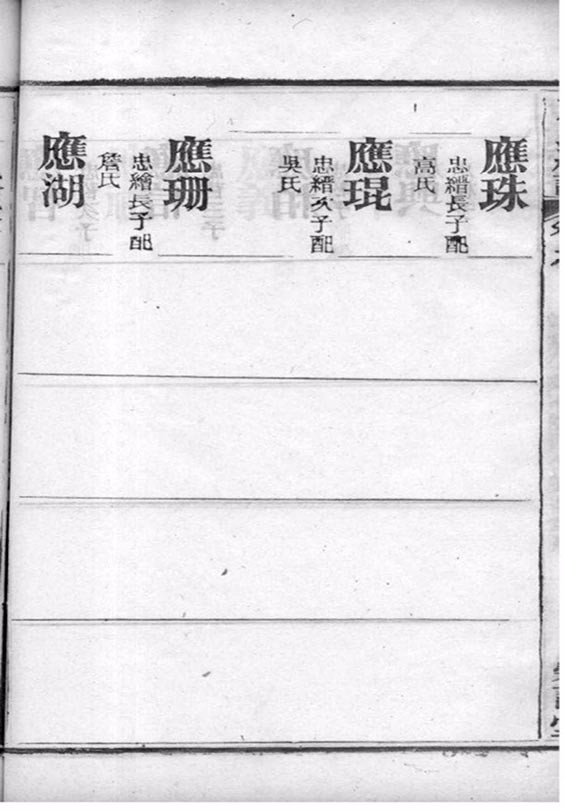 應珠
忠縉長子配
高氏
應琨
忠縉次子配
吳氏
應珊
忠繪長子配
詹氏
應湖